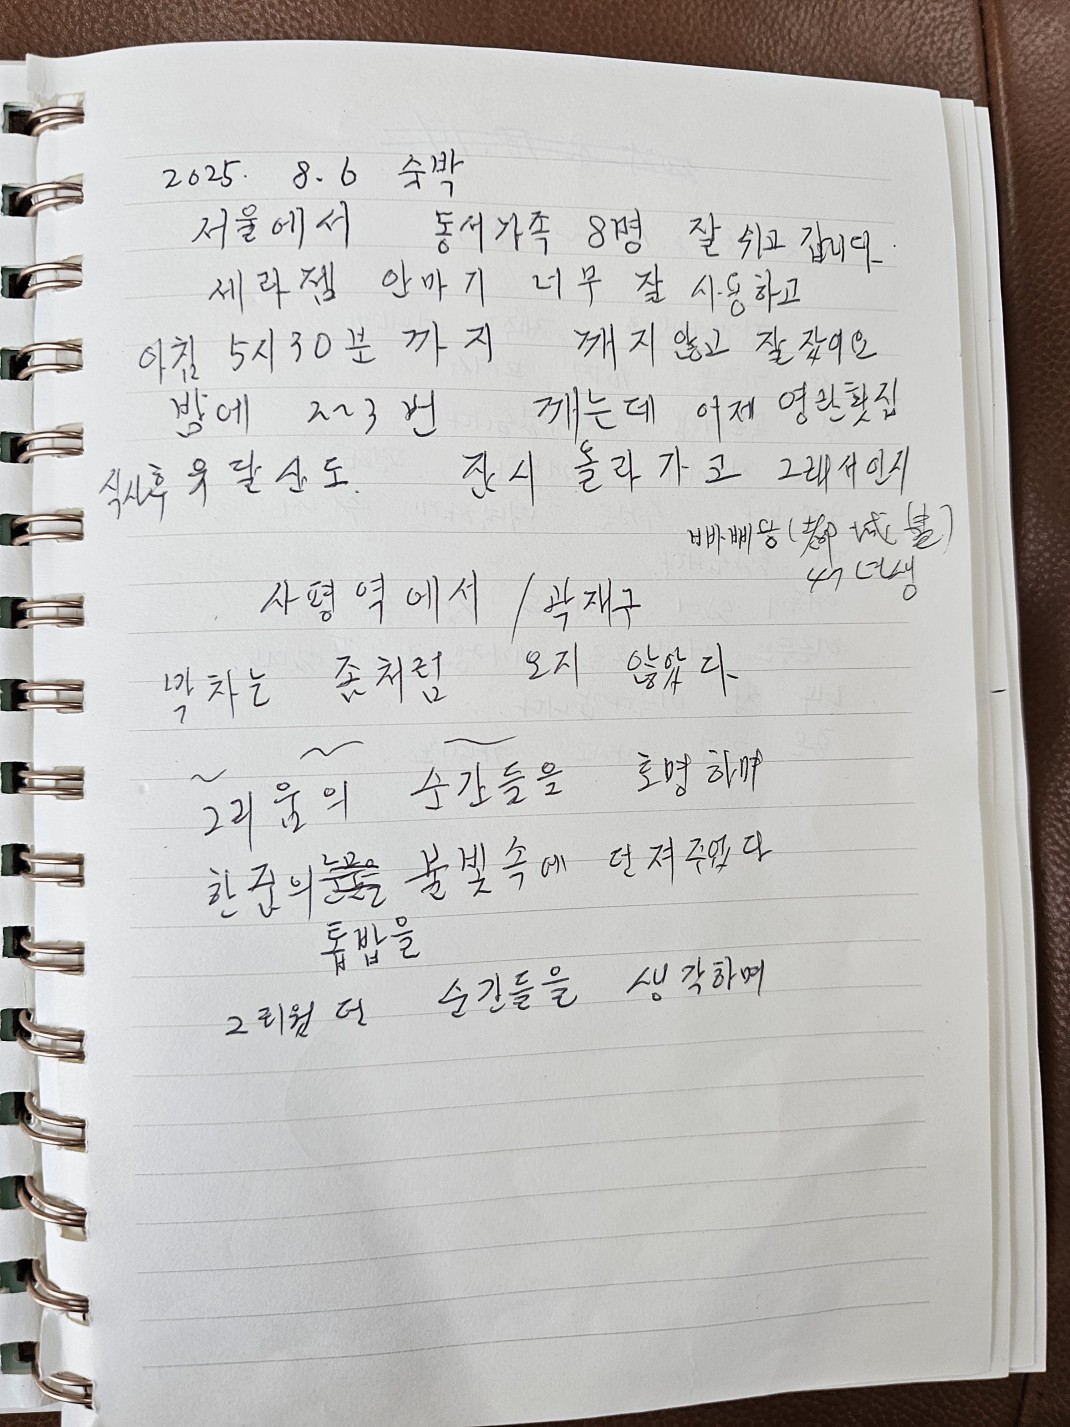 2025. 8.6 숙박
서울에서 동서가족 8명 잘 쉬고 갑니다.
세라젬 안마기 너무 잘 사용하고
아침 5시30분 까지 깨지않고 잘잤어요
밤에 2~3번 깨는데 어제 영란횟집
식사후 유달산도 잠시 올라가고 그래서인지
47년생
사평역에서 / 곽재구
막차는 좀처럼 오지 않았다
그리움의 순간들을 호명하며
한줌의 눈물을 불빛속에 던져주었다
톱밥을
그리웠던 순간들을 생각하며